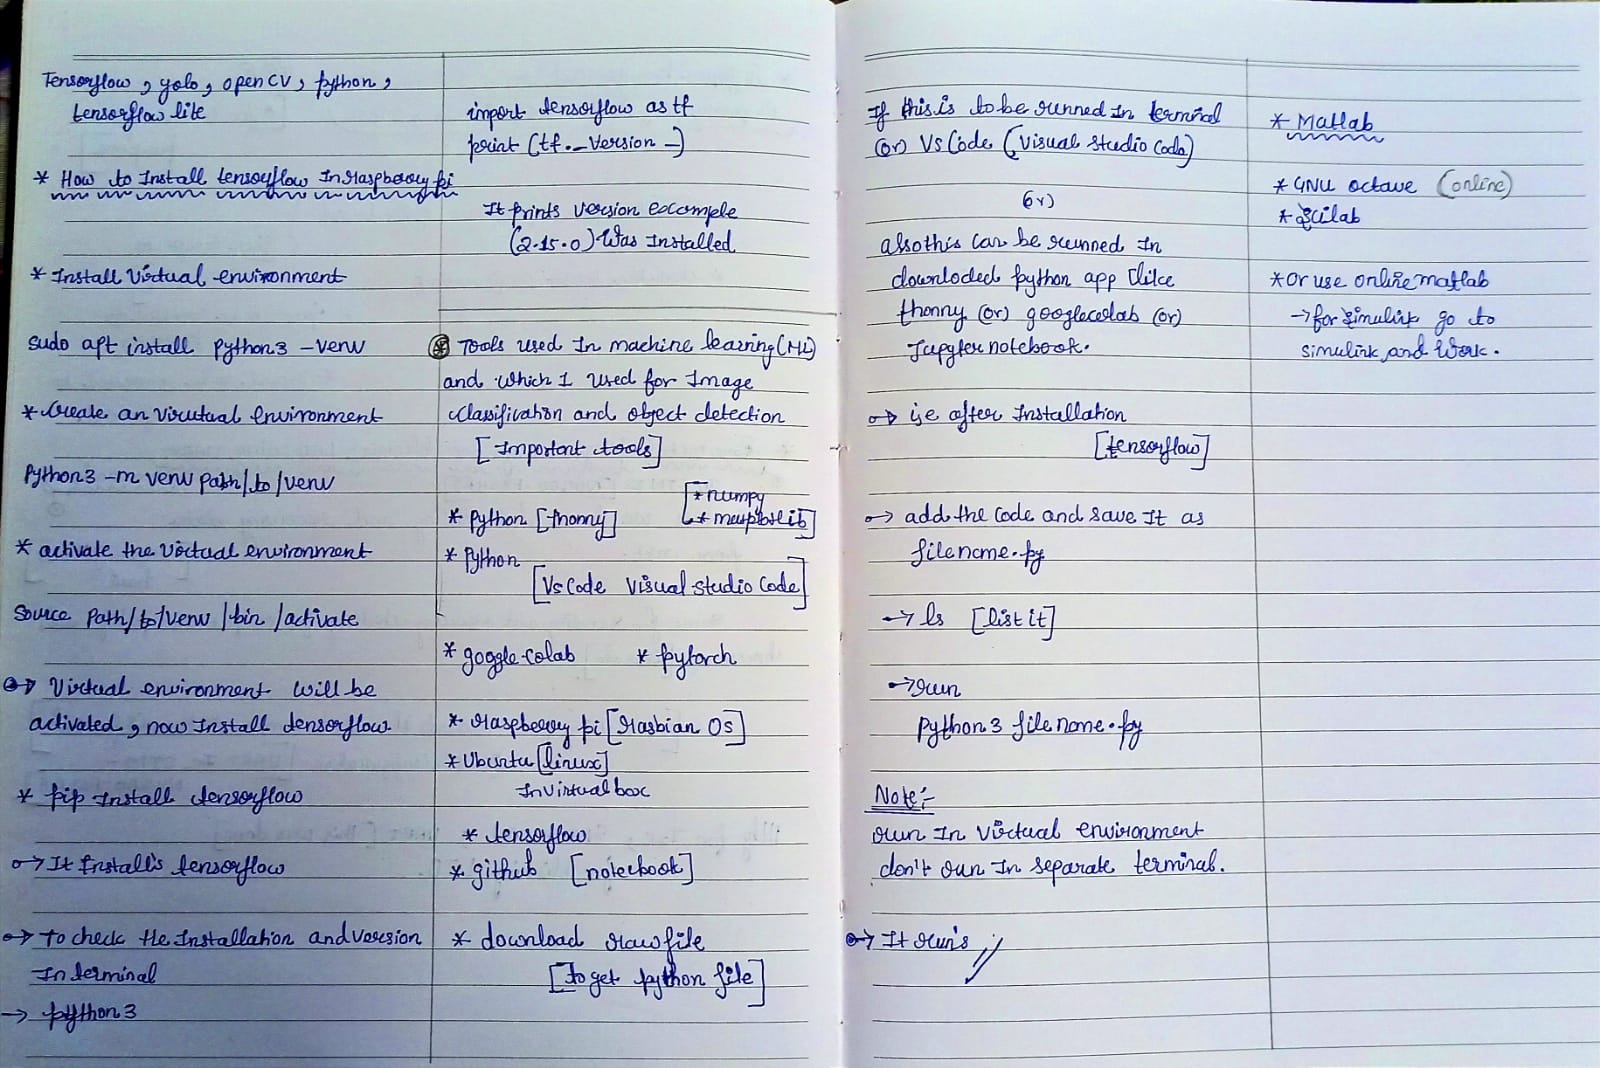 Tensorflow, yolo, open CV, python,
tensorflow lite
* How to Install tensorflow In raspberry pi
* Install Virtual environment
sudo apt install python3 -venv
* Create an virutual Environment
Python3 -m venv path/to/venv
* activate the Virtual environment
Source Path/to/venv/bin/activate
→ Virtual environment will be
activated, now Install tensorflow
* pip Install tensorflow
→ It Install's tensorflow
→ To check the Installation and version
In terminal
→ python3
import tensorflow as tf
print (tf._version_)
It prints version example
(2.15.0) Was Installed
* Tools used In machine learning (ML)
and which I used for Image
classification and object detection
[Important tools]
* Python [thonny]
[* numpy
* Python
[Vs Code Visual studio code]
* goggle colab * pytorch
* raspberry pi [rasbian Os]
* Ubuntu [linux]
In virtual box
* tensorflow
* github [notebook]
* download raw file
[to get python file]
If this is to be runned In terminal
(or) Vs Code (Visual studio Code)
(or)
also this can be runned In
downloded python app like
thonny (or) googlecolab (or)
Jupyter notebook.
→ i,e after Installation
[tensorflow]
→ add the code and save It as
filename.py
→ ls [list it]
→ run
python3 filename.py
Note:-
run In virtual environment
don't run In separate terminal.
→ It run's //
* Matlab
* GNU octave (online)
* Scilab
* Or use online matlab
→ for simulink go to
simulink and work.